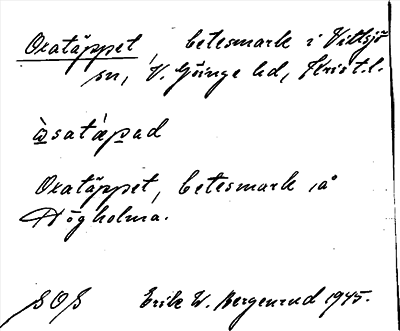 Oxatäppet, betesmark i Vittsjö
sn, V. Göinge hd, Krist.l.
àsatápad
Oxatäppet, betesmark å
Högholma.
SOS Erik W. Bergenrud 1945.